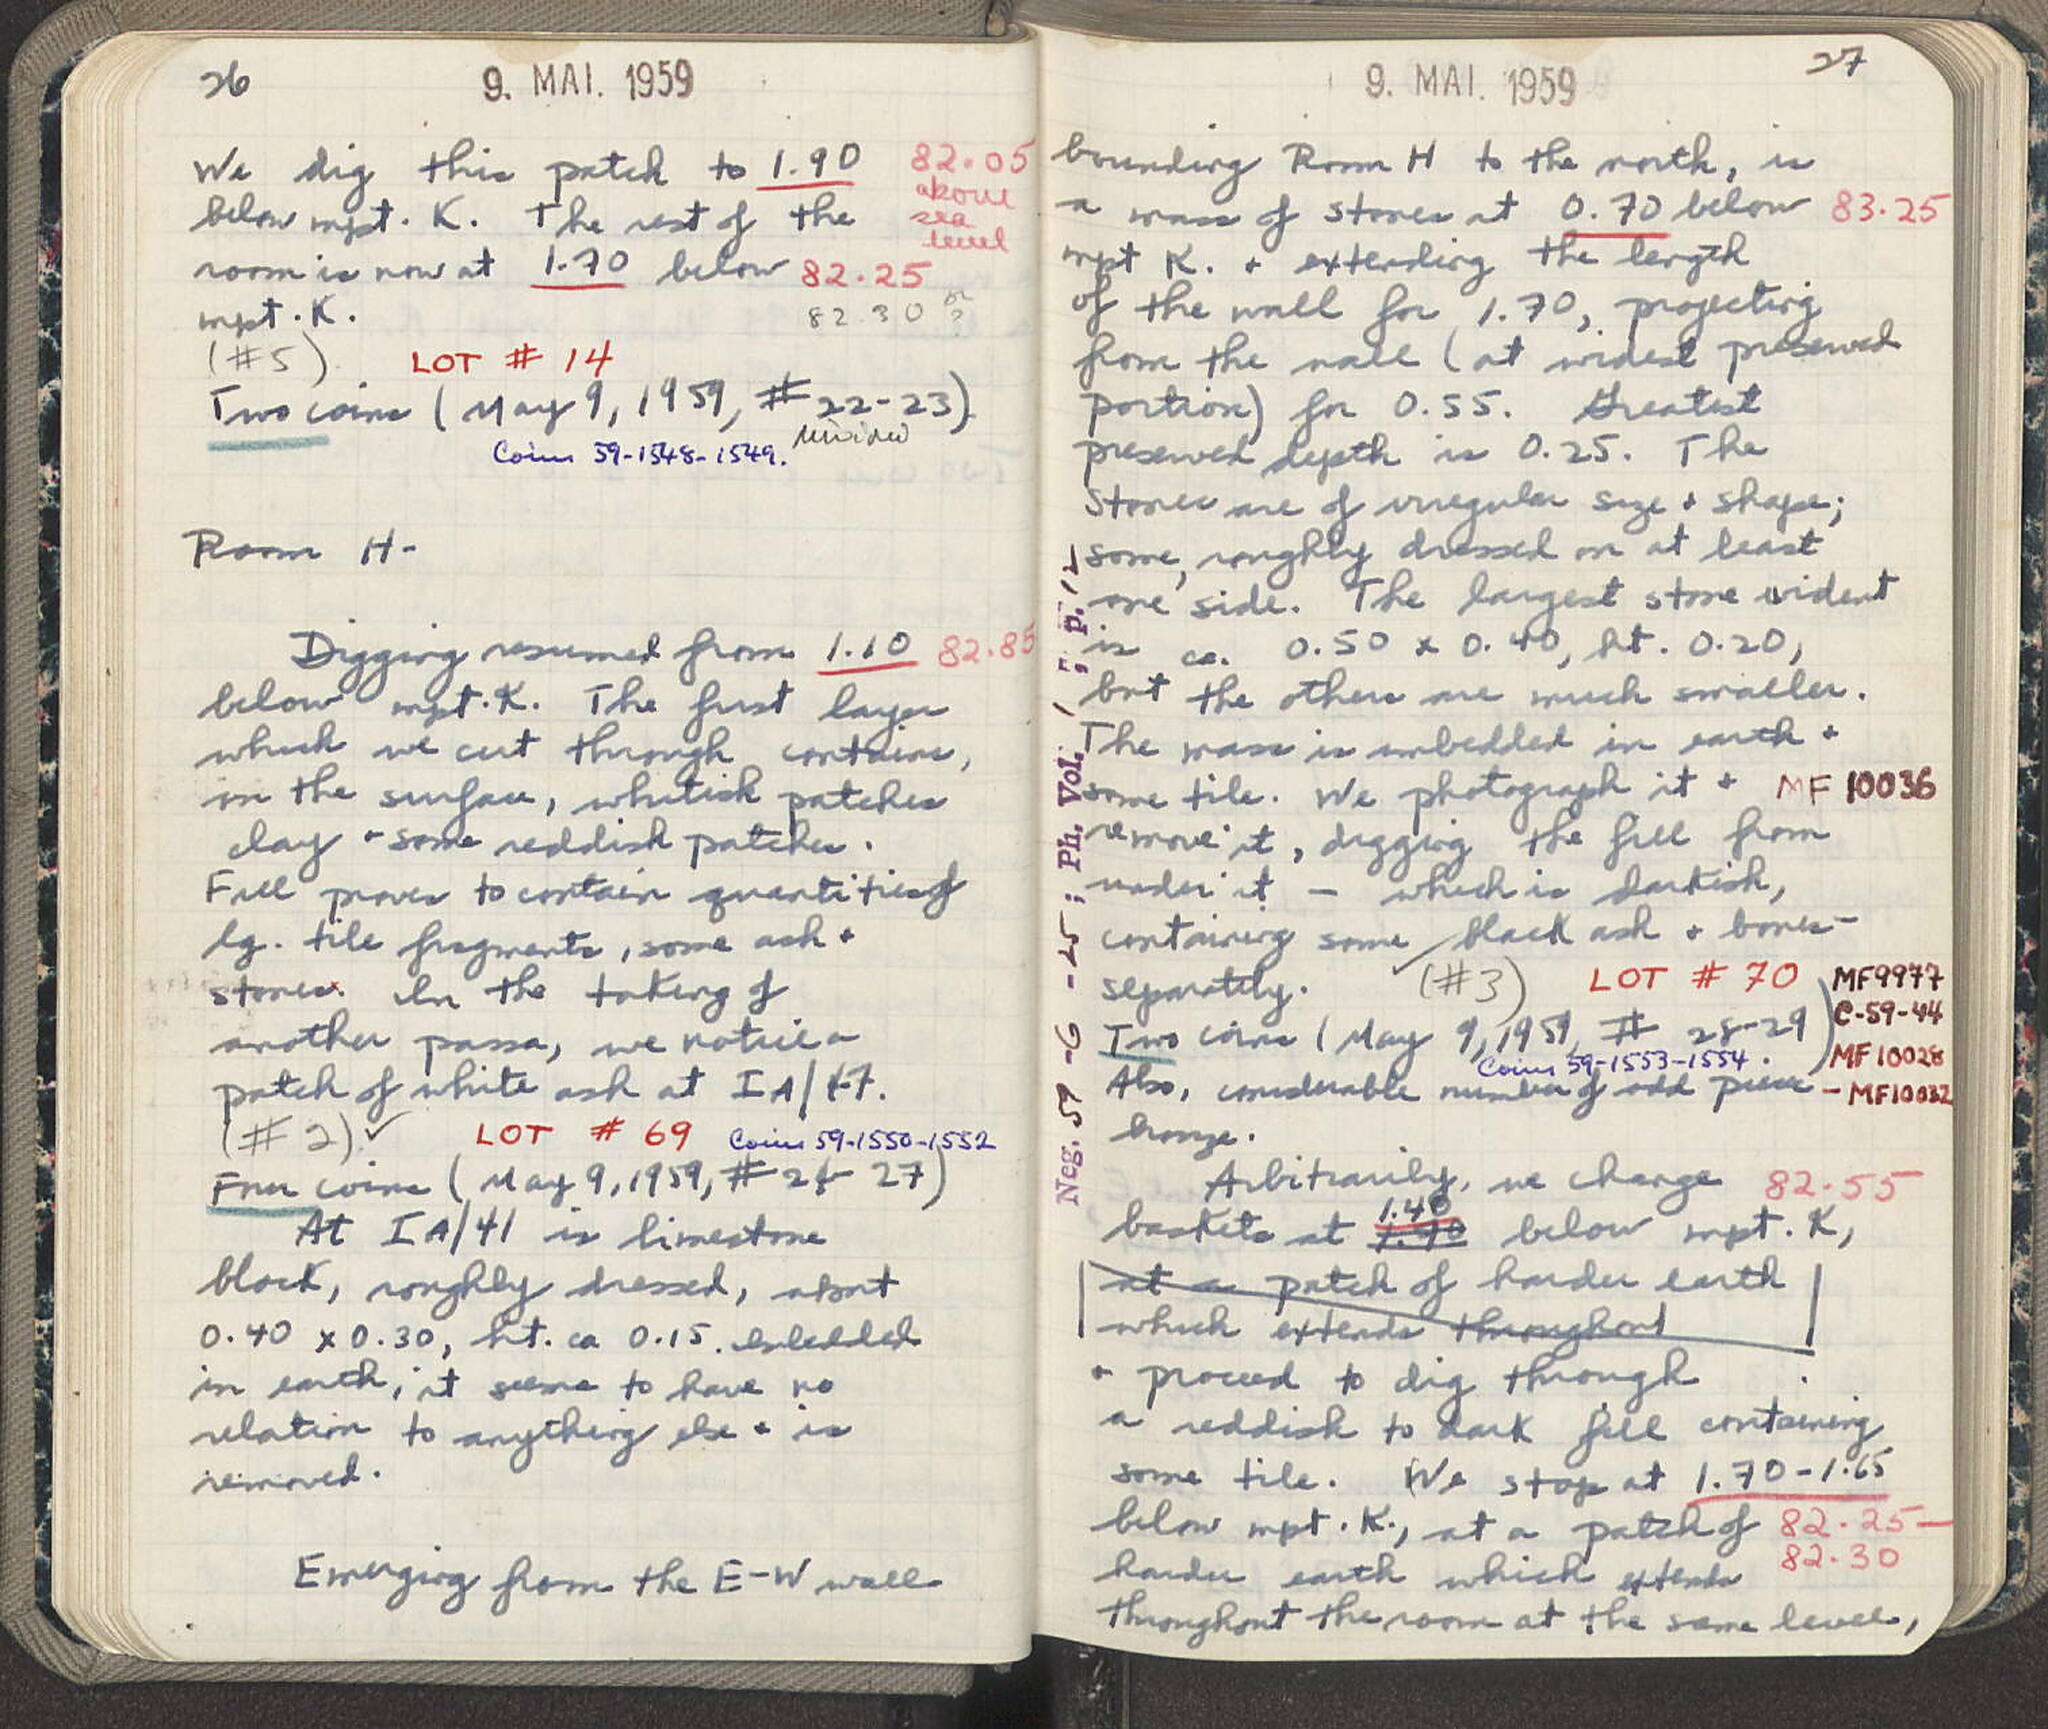 26
9. MAI. 1959
We dig this patch to 1.90 82.05
above
sea
level
below mpt. K. The rest of the
room is now at 1.70 below 82.25
mpt. K. 82.30 or ?
(#5) LOT # 14
Two coins (May 9, 1959, # 22-23)
Coins 59-1548-1549.
Room H-
Digging resumed from 1.10 82.85
below mpt. K. The first layer
which we cut through contains,
in the surface, whitish patches
clay + some reddish patches.
Fill proves to contain quantities of
lg. tile fragments, some ash +
stones. In the taking of
another passa, we notice a
patch of white ash at IA/47.
(#2) ✓ LOT # 69 Coins 59-1550-1552
Four coins (May 9, 1959, # 24-27)
At IA/41 is limestone
block, roughly dressed, about
0.40 x 0.30, ht. ca 0.15. embedded
in earth, it seems to have no
relation to anything else + is
removed.
Emerging from the E-W wall
27
9. MAI. 1959
bounding Room H to the north, is
a mass of stones at 0.70 below 83.25
mpt K. + extending the length
of the wall for 1.70, projecting
from the wall (at widest preserved
portion) for 0.55. Greatest
preserved depth is 0.25. The
stones are of irregular size + shape;
some, roughly dressed on at least
one side. The largest stone evident
is ca. 0.50 x 0.40, ht. 0.20,
but the others are much smaller.
The mass is embedded in earth +
some tile. We photograph it + MF 10036
remove it, digging the fill from
under it - which is darkish,
containing some black ash + bones-
separately. ✓ (#3) LOT # 70 MF9977
C-59-44
Two coins (May 9, 1959, # 28-29)
Coins 59-1553-1554. MF10028
Also, considerable number of odd pieces - MF10032
bronze.
Neg. 59 -6 -25; Ph. Vol. 1, p. 12
Arbitrarily, we change 82.55
baskets at 1.90 1.40 below mpt. K,
at a patch of harder earth
which extends throughout
+ proceed to dig through
a reddish to dark fill containing
some tile. We stop at 1.70-1.65
below mpt. K., at a patch of 82.25-
82.30
harder earth which extends
throughout the room at the same level,